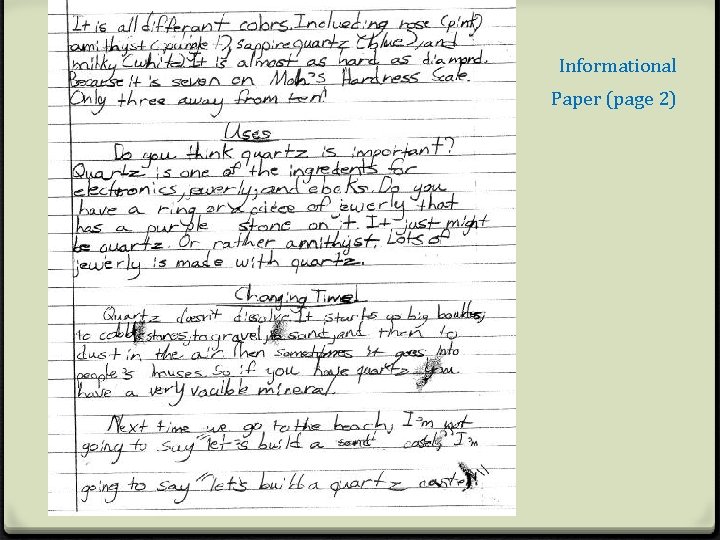 It is all differant colors. Inclueding rose (pink)
amithyst (purple!), sappire quartz (blue), and
milky (white) It is almost as hard as diamond.
Because it is seven on Moh's Hardness Scale.
Only three away from ten!
Uses
Do you think quartz is important?
Quartz is one of the ingredents for
electronics, and Do you
have a ring or a of jewerly that
has a purple stone on it. It just might
be quartz. Or rather amithyst. Lots of
jewerly is made with quartz.
Changing Time!
Quartz dosn't disolve. It starts up big
to to gravel, to sand, and then to
dust in the air. Then sometimes it goes into
people's houses. So if you have quartz you
have a very mineral.
Next time we go to the beach, I'm not
going to say "let's build a sand I'm
going to say "let's build a quartz
Informational
Paper (page 2)